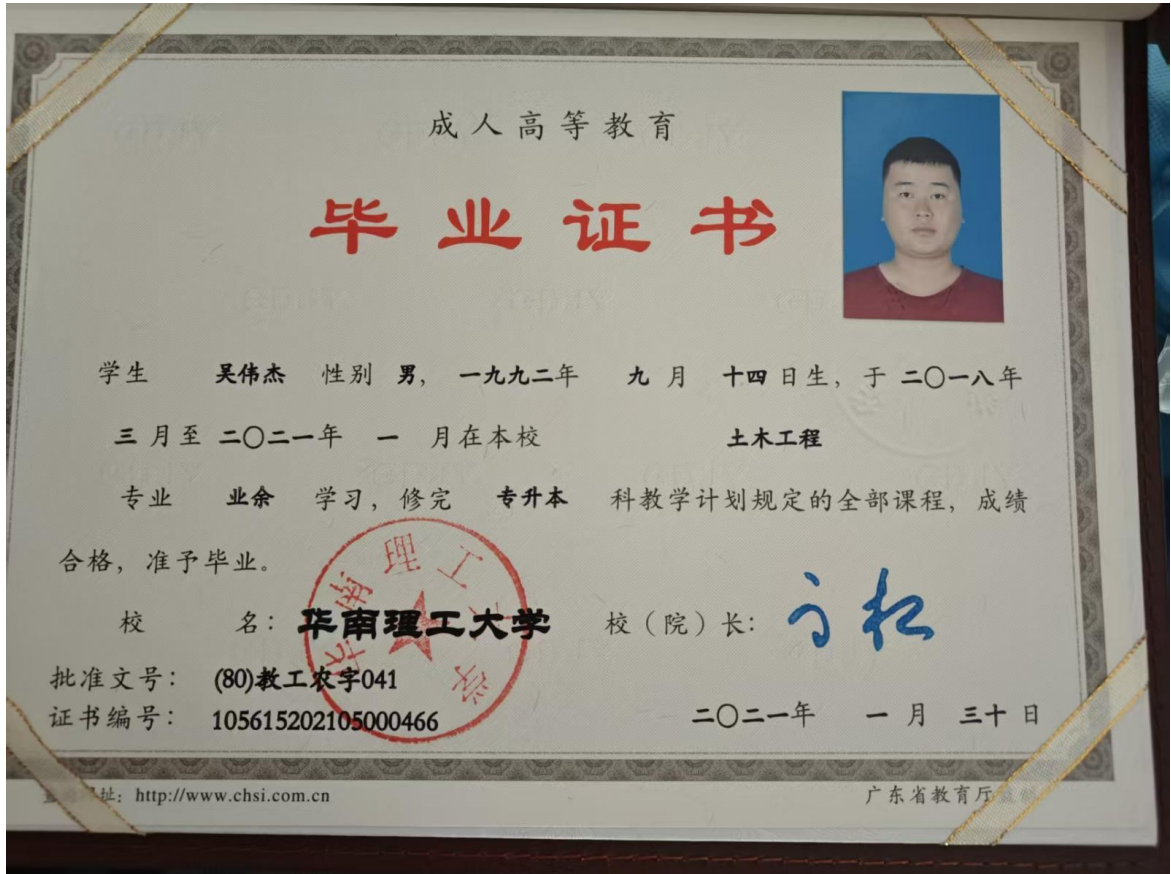 成人高等教育
毕业证书
学生 吴伟杰 性别 男, 一九九二年 九 月 十四 日生, 于 二〇一八年
三 月至 二〇二一年 一 月在本校 土木工程
专业 业余 学习, 修完 专升本 科教学计划规定的全部课程, 成绩
合格, 准予毕业。
校 名: 华南理工大学 校(院)长:
华南理工大学
批准文号: (80)教工农字041
证书编号: 105615202105000466 二〇二一年 一 月 三十 日
网址: http://www.chsi.com.cn 广东省教育厅